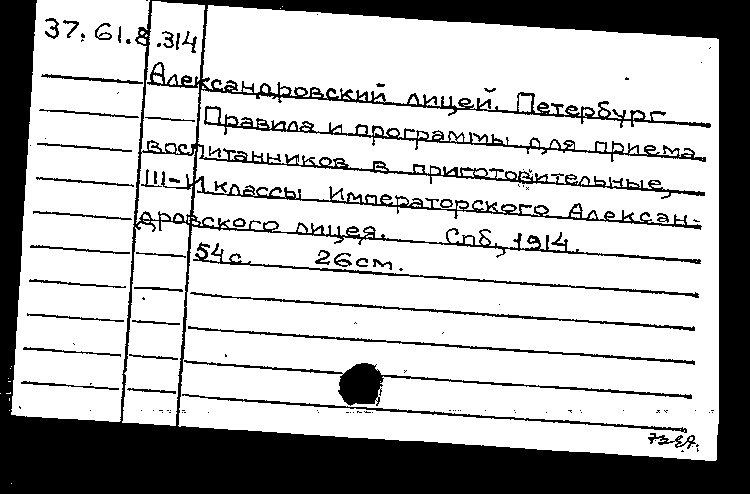 37.61.8.314
Александровский лицей. Петербург
Правила и программы для приема
воспитанников в приготовительные,
III-и классы Императорского Алексан-
дровского лицея. Спб., 1914.
54с. 26см.